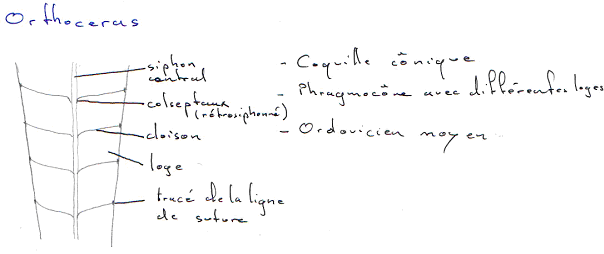 Orthoceras
siphon
central
colseptaux
(rétrosiphonné)
cloison
loge
tracé de la ligne
de suture
- Coquille cônique
- Phragmocône avec différentes loges
- Ordovicien moyen